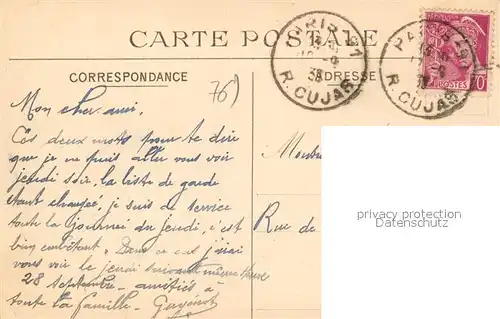 CARTE POSTALE
CORRESPONDANCE
ADRESSE
PARIS 91
38
R. CUJAS
PARIS 91
R. CUJAS
POSTES
70
76)
Mon cher ami.
Ces deux mots pour te dire
que je ne puis aller vous voir
jeudi soir, la liste de garde
étant changée, je suis de service
toute la journée du jeudi, c'est
bien embêtant. Dans ce cas j'irai
vous voir le jeudi suivant même heure
28 septembre - amitiés à
toute la famille -
Rue de
privacy protection
www.delcampe.net